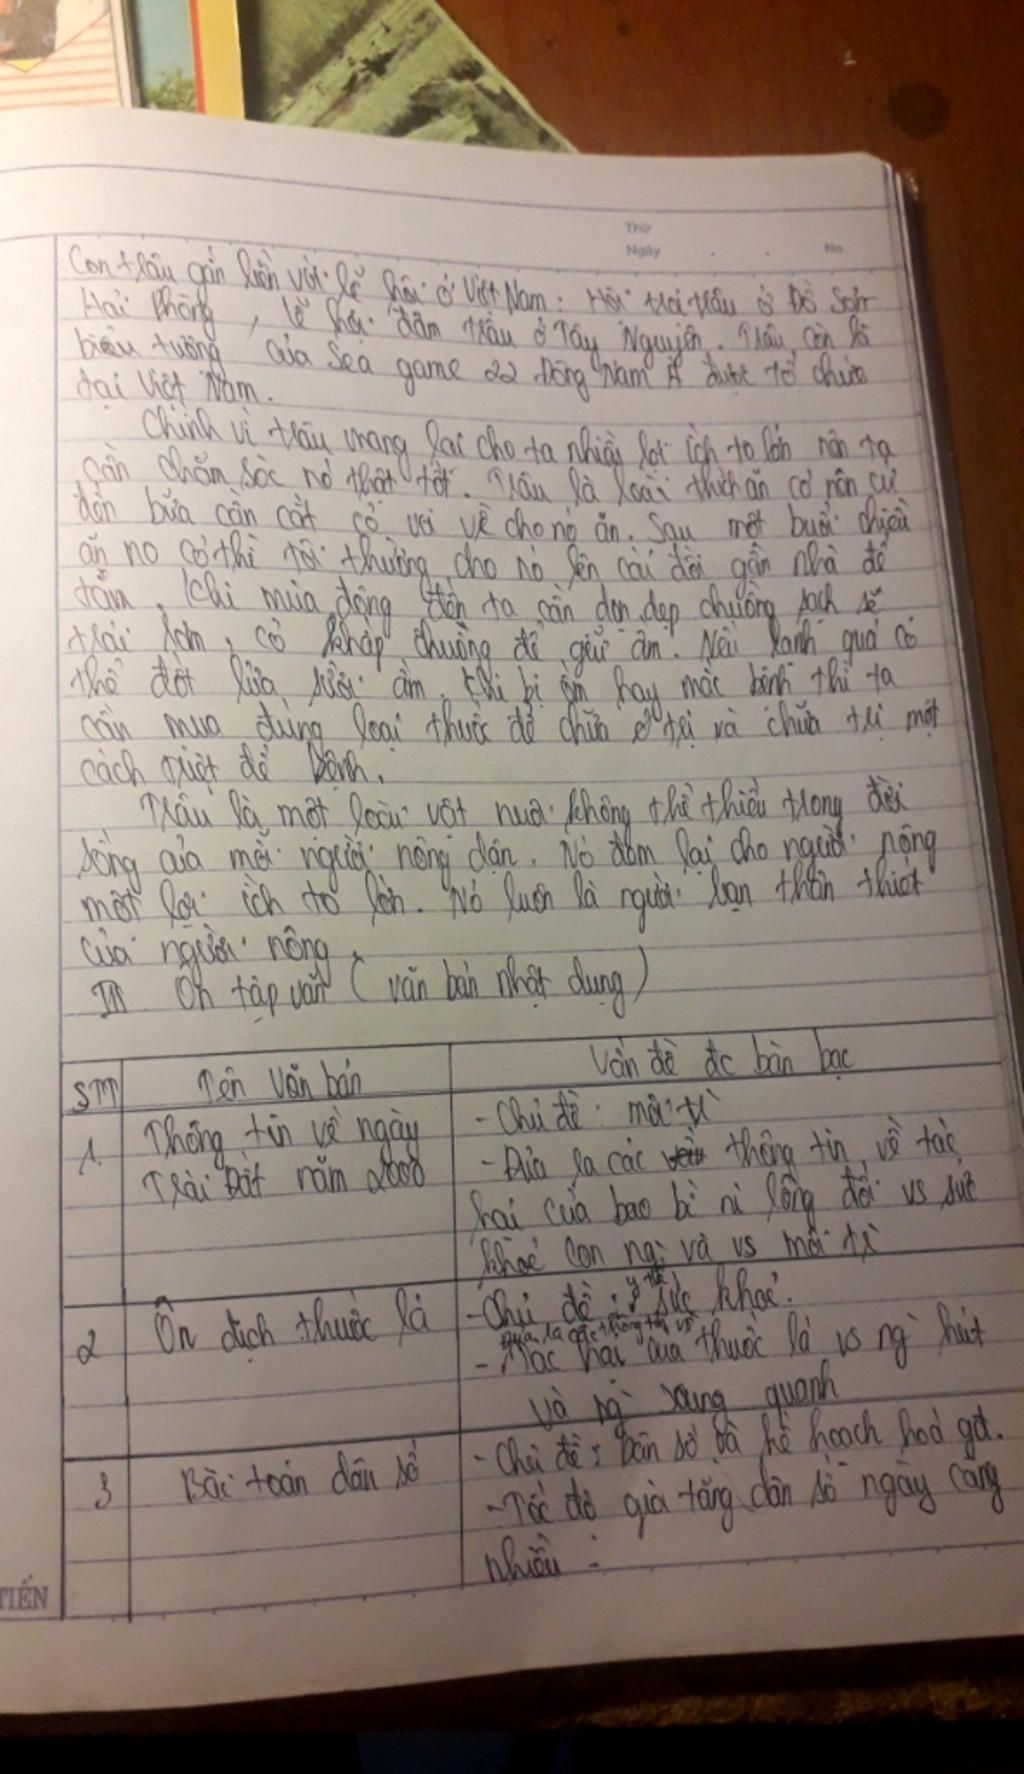 Thứ
Ngày . . No.
Con trâu gắn liền với lễ hội ở Việt Nam: Hội trọi trâu ở Đồ Sơn
Hải Phòng, lễ hội đâm trâu ở Tây Nguyên. Trâu còn là
biểu tượng của Sea game 22 Đông Nam Á được tổ chức
tại Việt Nam.
Chính vì trâu mang lại cho ta nhiều lợi ích to lớn nên ta
cần chăm sóc nó thật tốt. Trâu là loài thích ăn cỏ nên cứ
đến bữa cần cắt cỏ về cho nó ăn. Sau một buổi chiều
ăn no cỏ thì tôi thường cho nó lên cái đồi gần nhà để
tắm. Khi mùa đông đến ta cần dọn dẹp chuồng sạch sẽ
trải rơm, cỏ khắp chuồng để giữ ấm. Nếu lạnh quá có
thể đốt lửa sưởi ấm. Khi bị ốm hay mắc bệnh thì ta
cần mua đúng loại thuốc để chữa trị và chữa trị một
cách triệt để bệnh.
Trâu là một loài vật nuôi không thể thiếu trong đời
sống của mỗi người nông dân. Nó đem lại cho người nông
một lợi ích to lớn. Nó luôn là người bạn thân thiết
của người nông.
III Ôn tập văn (văn bản nhật dụng)
STT Tên Văn bản Vấn đề đc bàn bạc
1. Thông tin về ngày
Trái Đất năm 2000
- Chủ đề: môi tr
- Đưa ra các thông tin về tác
hại của bao bì ni lông đối vs sức
khoẻ con ng và vs môi tr
2 Ôn dịch thuốc lá
- Chủ đề: y tế sức khoẻ.
Đưa ra các thông tin về
- Tác hại của thuốc lá vs ng hút
và ng xung quanh
3 Bài toán dân số
- Chủ đề: Dân số và kế hoạch hoá gđ.
- Tốc độ gia tăng dân số ngày càng
nhiều
TIẾN